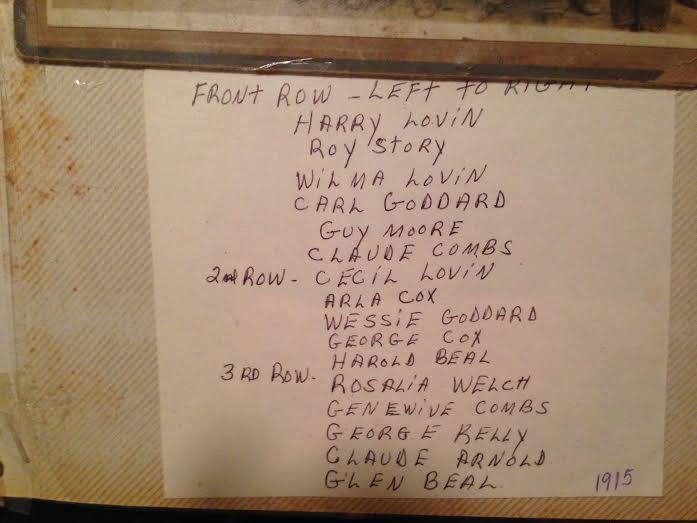 FRONT ROW - LEFT TO RIGHT
HARRY LOVIN
ROY STORY
WILMA LOVIN
CARL GODDARD
GUY MOORE
CLAUDE COMBS
2nd ROW - CECIL LOVIN
ARLA COX
WESSIE GODDARD
GEORGE COX
HAROLD BEAL
3RD ROW - ROSALIA WELCH
GENEWIVE COMBS
GEORGE KELLY
CLAUDE ARNOLD
GLEN BEAL
1915